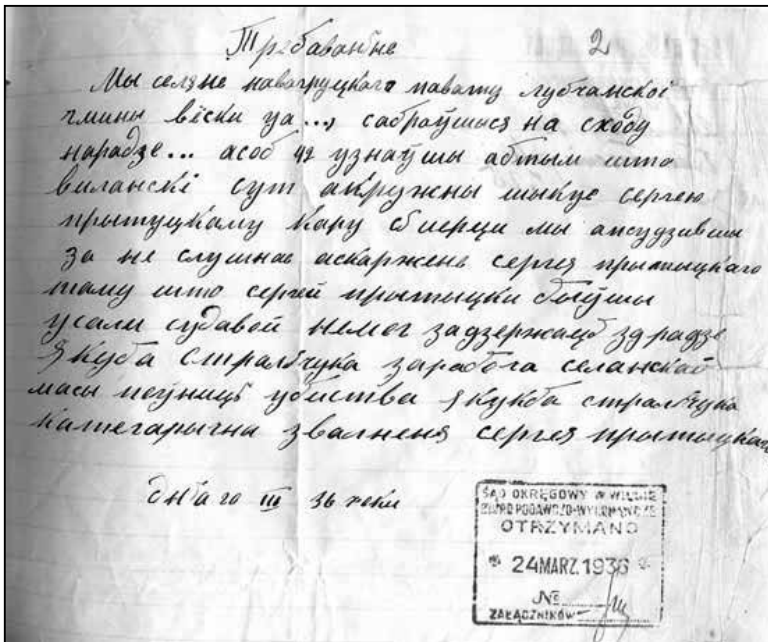 Требаваньне 2
Мы селяне навагруцкаго павату лубчанской
гмины вёски уа..., сабраўшыся на сходу
нарадзе... асоб 42 узнаўшы абтым што
виланскі сут акружны шыкуе сергею
прытуцкаму кару сьмерци мы
за не слушнае аскаржень сергея прытыцкаго
таму што сергей прытыцки быўшы
усали судавой немог задзержаць здрадзе
якуба стральчука заработа селанской
масы убиства стральчука
категарычна званеня сергея прытыцкаго
III 36 року
SĄD OKRĘGOWY W WILNIE
BIURO PODAWCZO-WYKONAWCZE
OTRZYMANO
* 24 MARZ. 1936 *
№
ZAŁĄCZNIKÓW